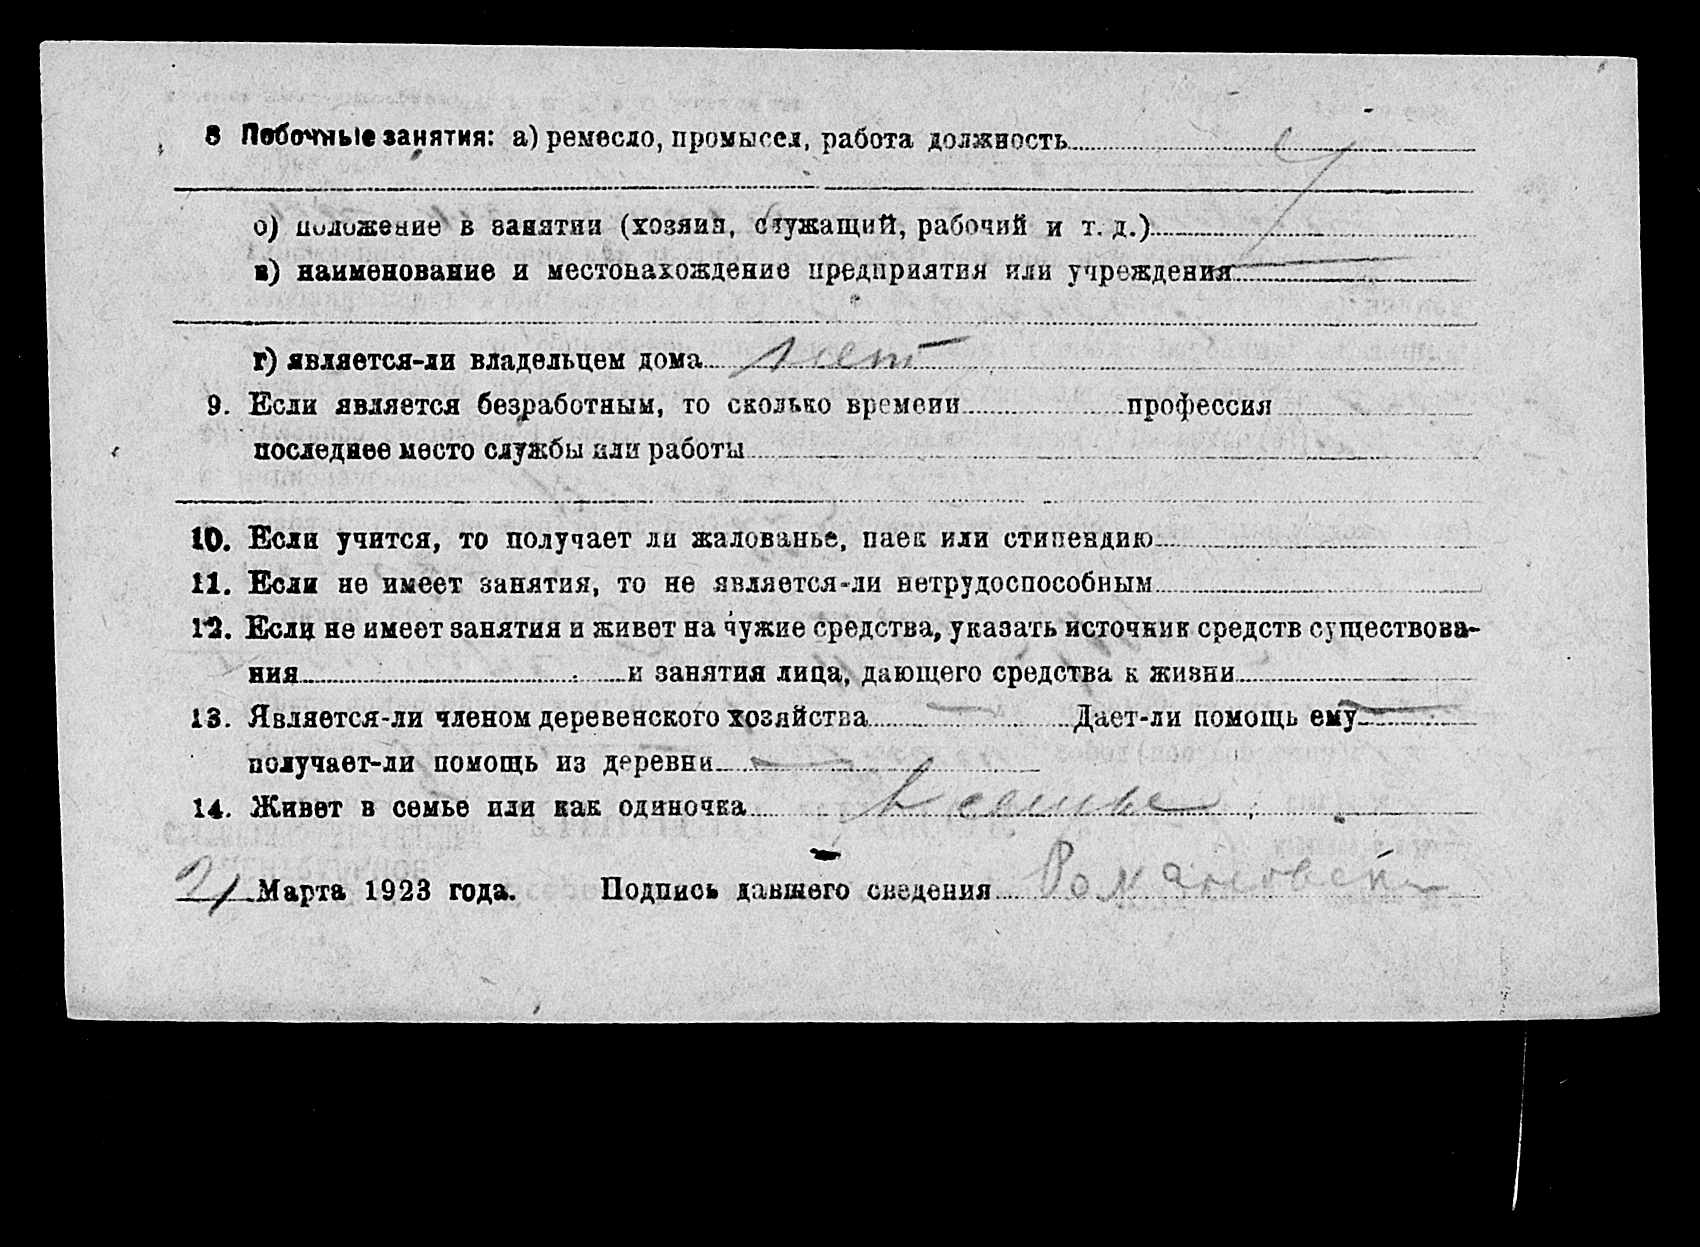 8 Побочные занятия: а) ремесло, промысел, работа должность
б) положение в занятии (хозяин, служащий, рабочий и т. д.)
в) наименование и местонахождение предприятия или учреждения
г) является-ли владельцем дома нет
9. Если является безработным, то сколько времени профессия
последнее место службы или работы
10. Если учится, то получает ли жалованье, паек или стипендию
11. Если не имеет занятия, то не является-ли нетрудоспособным
12. Если не имеет занятия и живет на чужие средства, указать источник средств существова-
ния и занятия лица, дающего средства к жизни
13. Является-ли членом деревенского хозяйства — Дает-ли помощь ему —
получает-ли помощь из деревни —
14. Живет в семье или как одиночка в семье
21 Марта 1923 года. Подпись давшего сведения